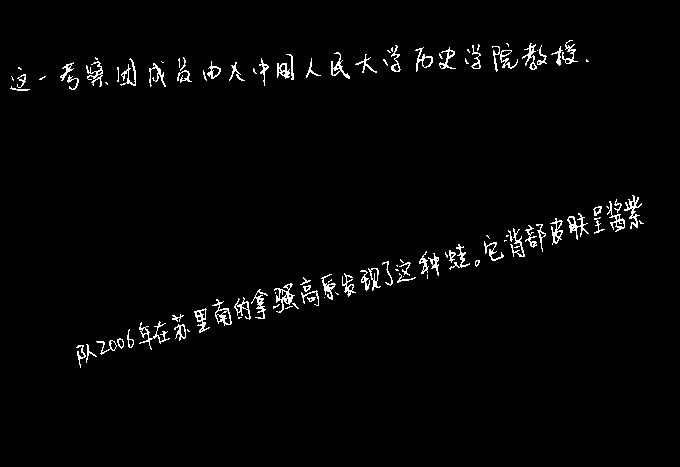 这一考察团成员由人中国人民大学历史学院教授.
队2006年在苏里南的拿骚高原发现了这种蛙。它背部皮肤呈酱紫